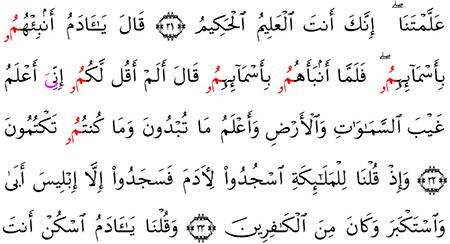 عَلَّمْتَنَاۖ إِنَّكَ أَنتَ ٱلْعَلِيمُ ٱلْحَكِيمُ ٣١ قَالَ يَـٰٓـَٔادَمُ أَنۢبِئْهُمُۥ
بِأَسْمَآئِهِمُۥۖ فَلَمَّآ أَنۢبَأَهُمُۥ بِأَسْمَآئِهِمُۥ قَالَ أَلَمْ أَقُل لَّكُمُۥ إِنِّىَ أَعْلَمُ
غَيْبَ ٱلسَّمَـٰوَٰتِ وَٱلْأَرْضِ وَأَعْلَمُ مَا تُبْدُونَ وَمَا كُنتُمُۥ تَكْتُمُونَ
٣٢ وَإِذْ قُلْنَا لِلْمَلَـٰٓئِكَةِ ٱسْجُدُوا۟ لِـَٔادَمَ فَسَجَدُوٓا۟ إِلَّآ إِبْلِيسَ أَبَىٰ
وَٱسْتَكْبَرَ وَكَانَ مِنَ ٱلْكَـٰفِرِينَ ٣٣ وَقُلْنَا يَـٰٓـَٔادَمُ ٱسْكُنْ أَنتَ